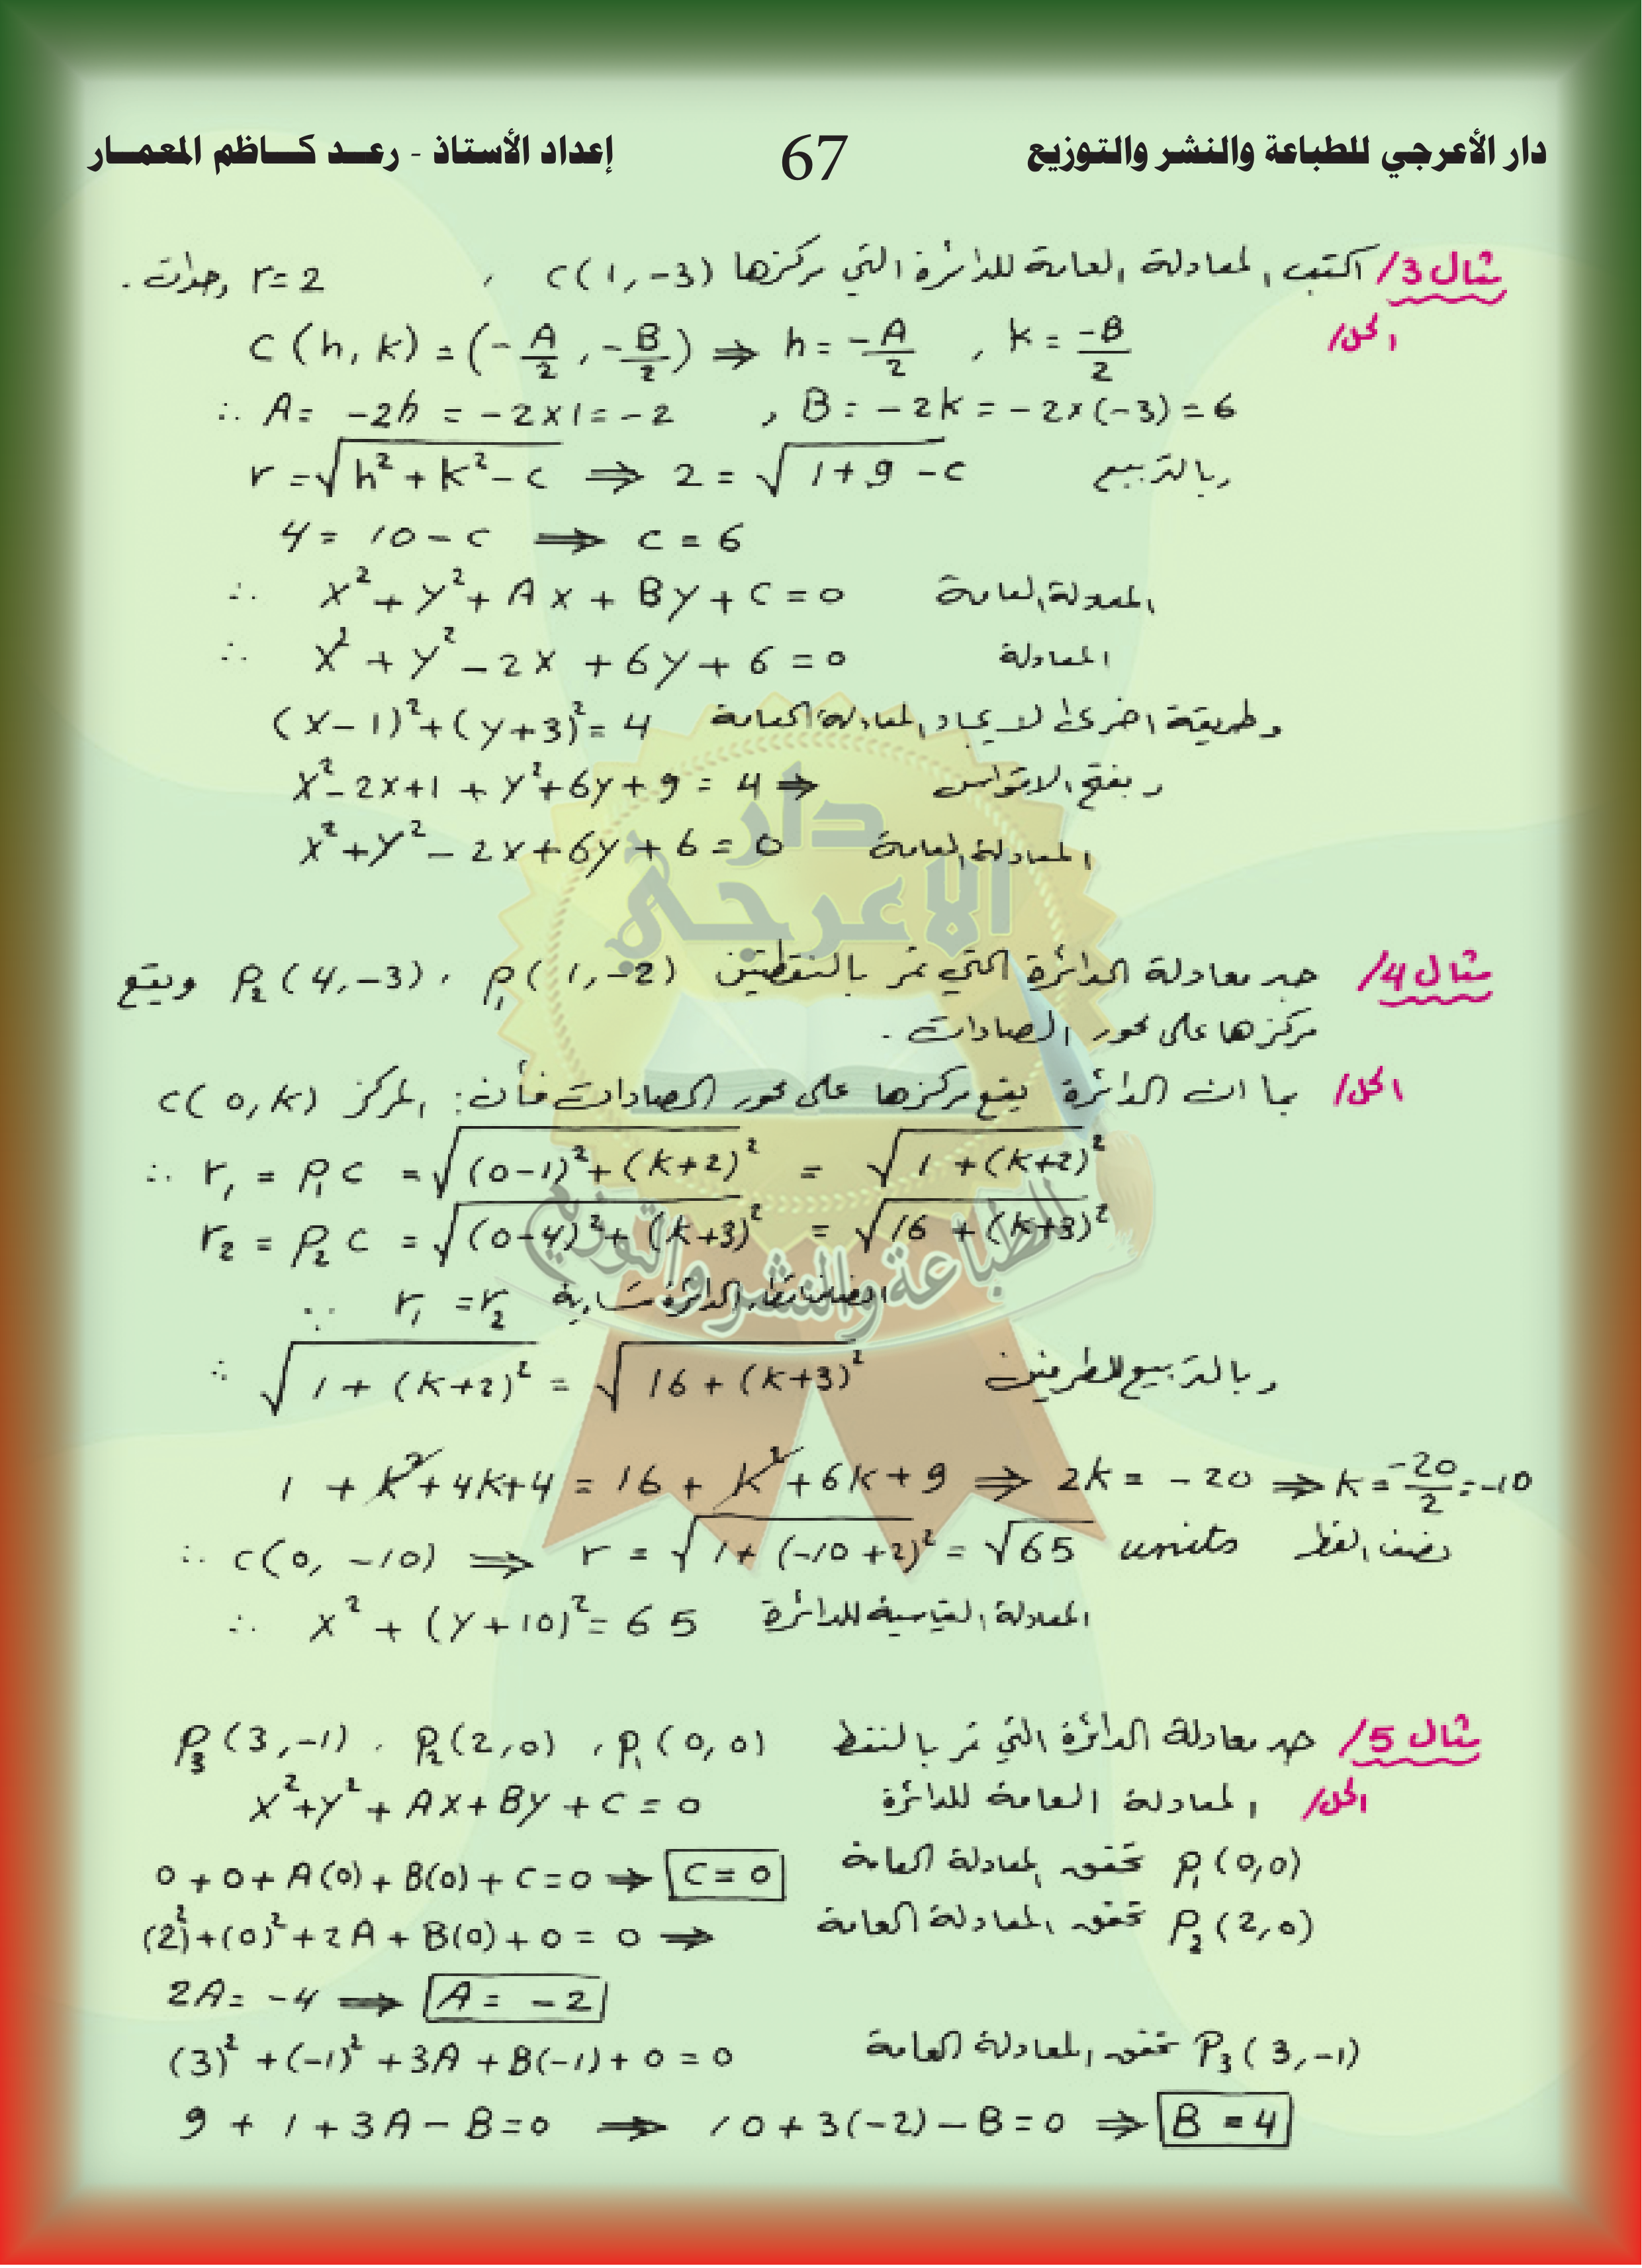 دار الأعرجي للطباعة والنشر والتوزيع 67 إعداد الأستاذ - رعد كاظم المعمار
مثال 3/ اكتب المعادلة العامة للدائرة التي مركزها C(1,-3) ، r=2 وحدات.
الحل/ C(h,k) = (-A/2, -B/2) ⇒ h = -A/2 , k = -B/2
∴ A = -2h = -2×1 = -2 , B = -2k = -2×(-3) = 6
r = √(h²+k²-c) ⇒ 2 = √(1+9-c) وبالتربيع
4 = 10-c ⇒ c = 6
∴ x²+y²+Ax+By+C=0 المعادلة العامة
∴ x²+y²-2x+6y+6=0 المعادلة
وطريقة اخرى لايجاد المعادلة العامة (x-1)²+(y+3)²=4
وبفتح الاقواس x²-2x+1+y²+6y+9=4 ⇒
x²+y²-2x+6y+6=0 المعادلة العامة
دار
الاعرجي
للطباعة والنشر والتوزيع
مثال 4/ جد معادلة الدائرة التي تمر بالنقطتين P₁(1,-2) ، P₂(4,-3) ويقع
مركزها على محور الصادات.
الحل/ بما ان الدائرة يقع مركزها على محور الصادات فأن: المركز C(0,k)
∴ r₁ = P₁C = √((0-1)²+(k+2)²) = √(1+(k+2)²)
r₂ = P₂C = √((0-4)²+(k+3)²) = √(16+(k+3)²)
∵ r₁ = r₂ الدائرة متساوية
∴ √(1+(k+2)²) = √(16+(k+3)²) وبالتربيع للطرفين
1+k²+4k+4 = 16+k²+6k+9 ⇒ 2k = -20 ⇒ k = -20/2 = -10
∴ C(0,-10) ⇒ r = √(1+(-10+2)²) = √65 units نصف القطر
∴ x²+(y+10)²=65 المعادلة القياسية للدائرة
مثال 5/ جد معادلة الدائرة التي تمر بالنقط P₁(0,0) ، P₂(2,0) ، P₃(3,-1)
الحل/ المعادلة العامة للدائرة x²+y²+Ax+By+C=0
P₁(0,0) تحقق المعادلة العامة 0+0+A(0)+B(0)+C=0 ⇒ C=0
P₂(2,0) تحقق المعادلة العامة (2)²+(0)²+2A+B(0)+0=0 ⇒
2A = -4 ⇒ A = -2
P₃(3,-1) تحقق المعادلة العامة (3)²+(-1)²+3A+B(-1)+0=0
9+1+3A-B=0 ⇒ 10+3(-2)-B=0 ⇒ B=4